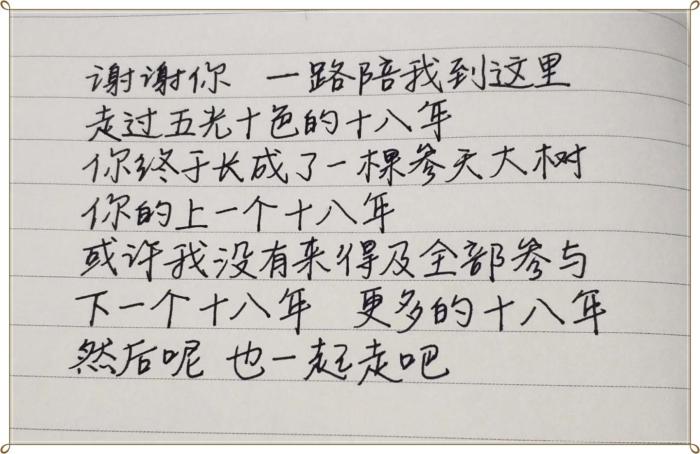 谢谢你 一路陪我到这里
走过五光十色的十八年
你终于长成了一棵参天大树
你的上一个十八年
或许我没有来得及全部参与
下一个十八年 更多的十八年
然后呢 也一起走吧